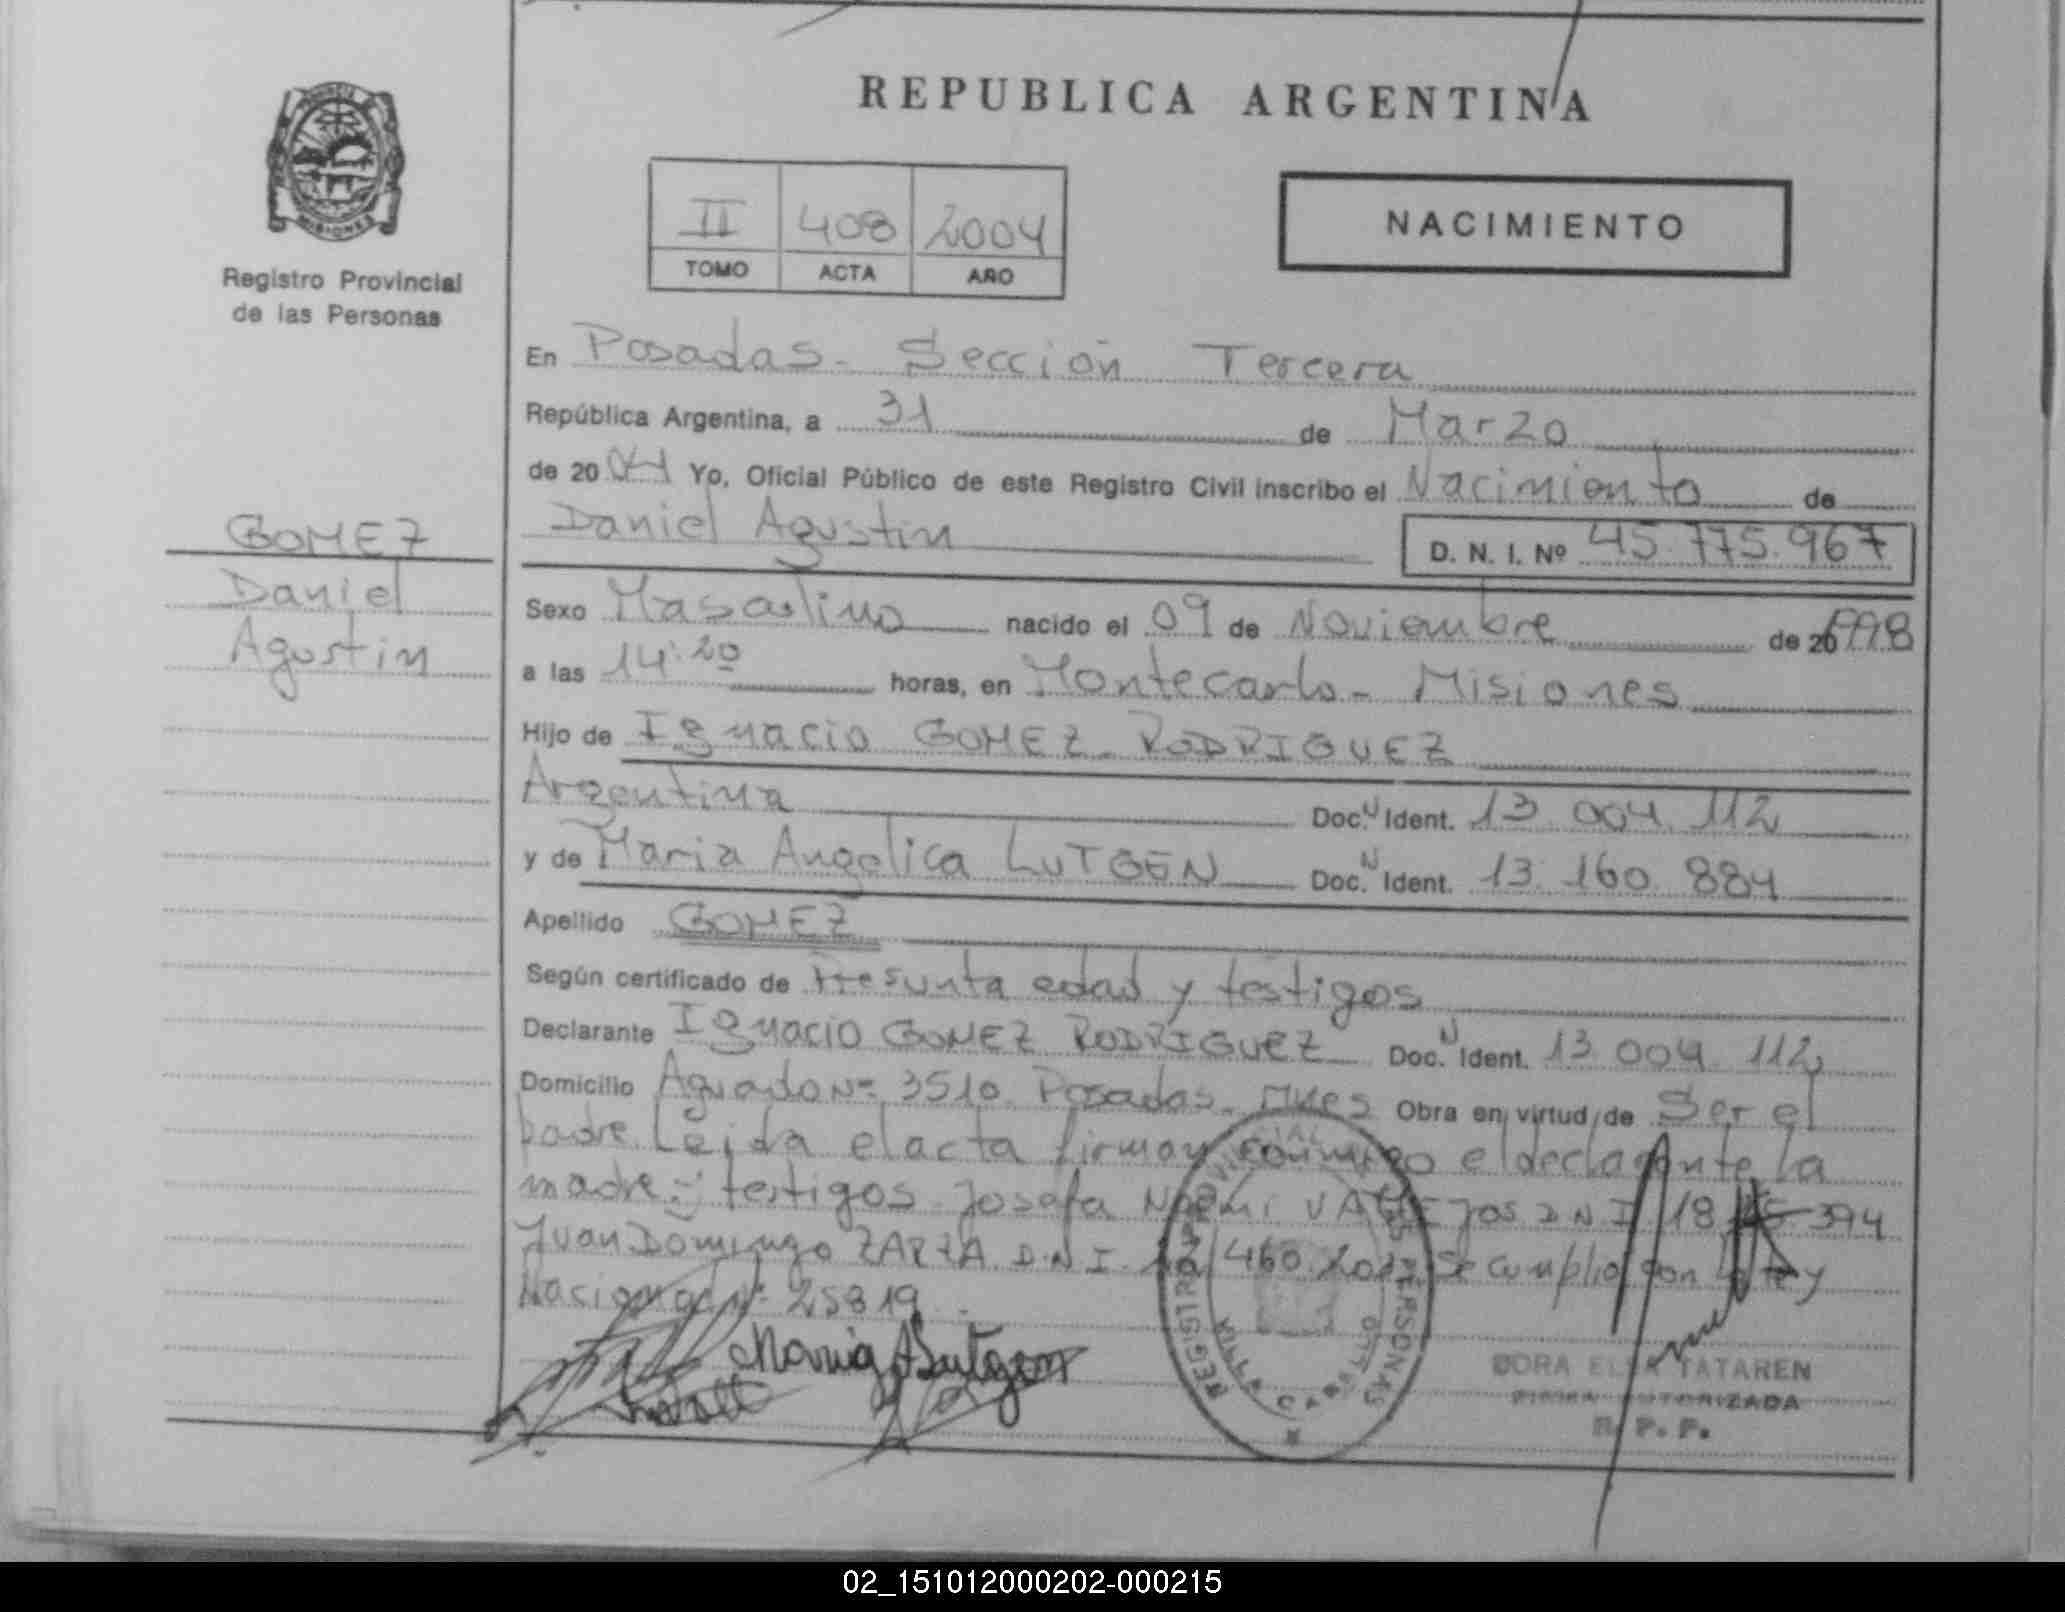 REPUBLICA ARGENTINA
PROVINCIA DE MISIONES
Registro Provincial
de las Personas
II 408 2004
TOMO ACTA AÑO
NACIMIENTO
En Posadas - Sección Tercera
República Argentina, a 31 de Marzo
de 2004 Yo, Oficial Público de este Registro Civil inscribo el Nacimiento de
GOMEZ
Daniel
Agustin
Daniel Agustin D. N. I. Nº 45.775.967
Sexo Masculino nacido el 09 de Noviembre de 201998
a las 14:20 horas, en Montecarlo - Misiones
Hijo de Ignacio GOMEZ RODRIGUEZ
Argentina Doc. N Ident. 13.004.112
y de Maria Angelica LUTGEN Doc. N Ident. 13.160.884
Apellido GOMEZ
Según certificado de Presunta edad y testigos
Declarante Ignacio GOMEZ RODRIGUEZ Doc. N Ident. 13.004.112
Domicilio Aguado Nº 3510 Posadas Mnes Obra en virtud de Ser el
padre. Leida el acta firman conmigo el declarante la
madre y testigos Josefa Noemi VALLEJOS D N I 18 394
Juan Domingo ZARZA D.N.I. 460 Se cumplio con la Ley
Nacional Nº 25819
Maria A Lutgen
REGISTRO PROVINCIAL DE LAS PERSONAS
VILLA CABELLO
DORA ELSA TATAREN
FIRMA AUTORIZADA
R. P. P.
02_151012000202-000215